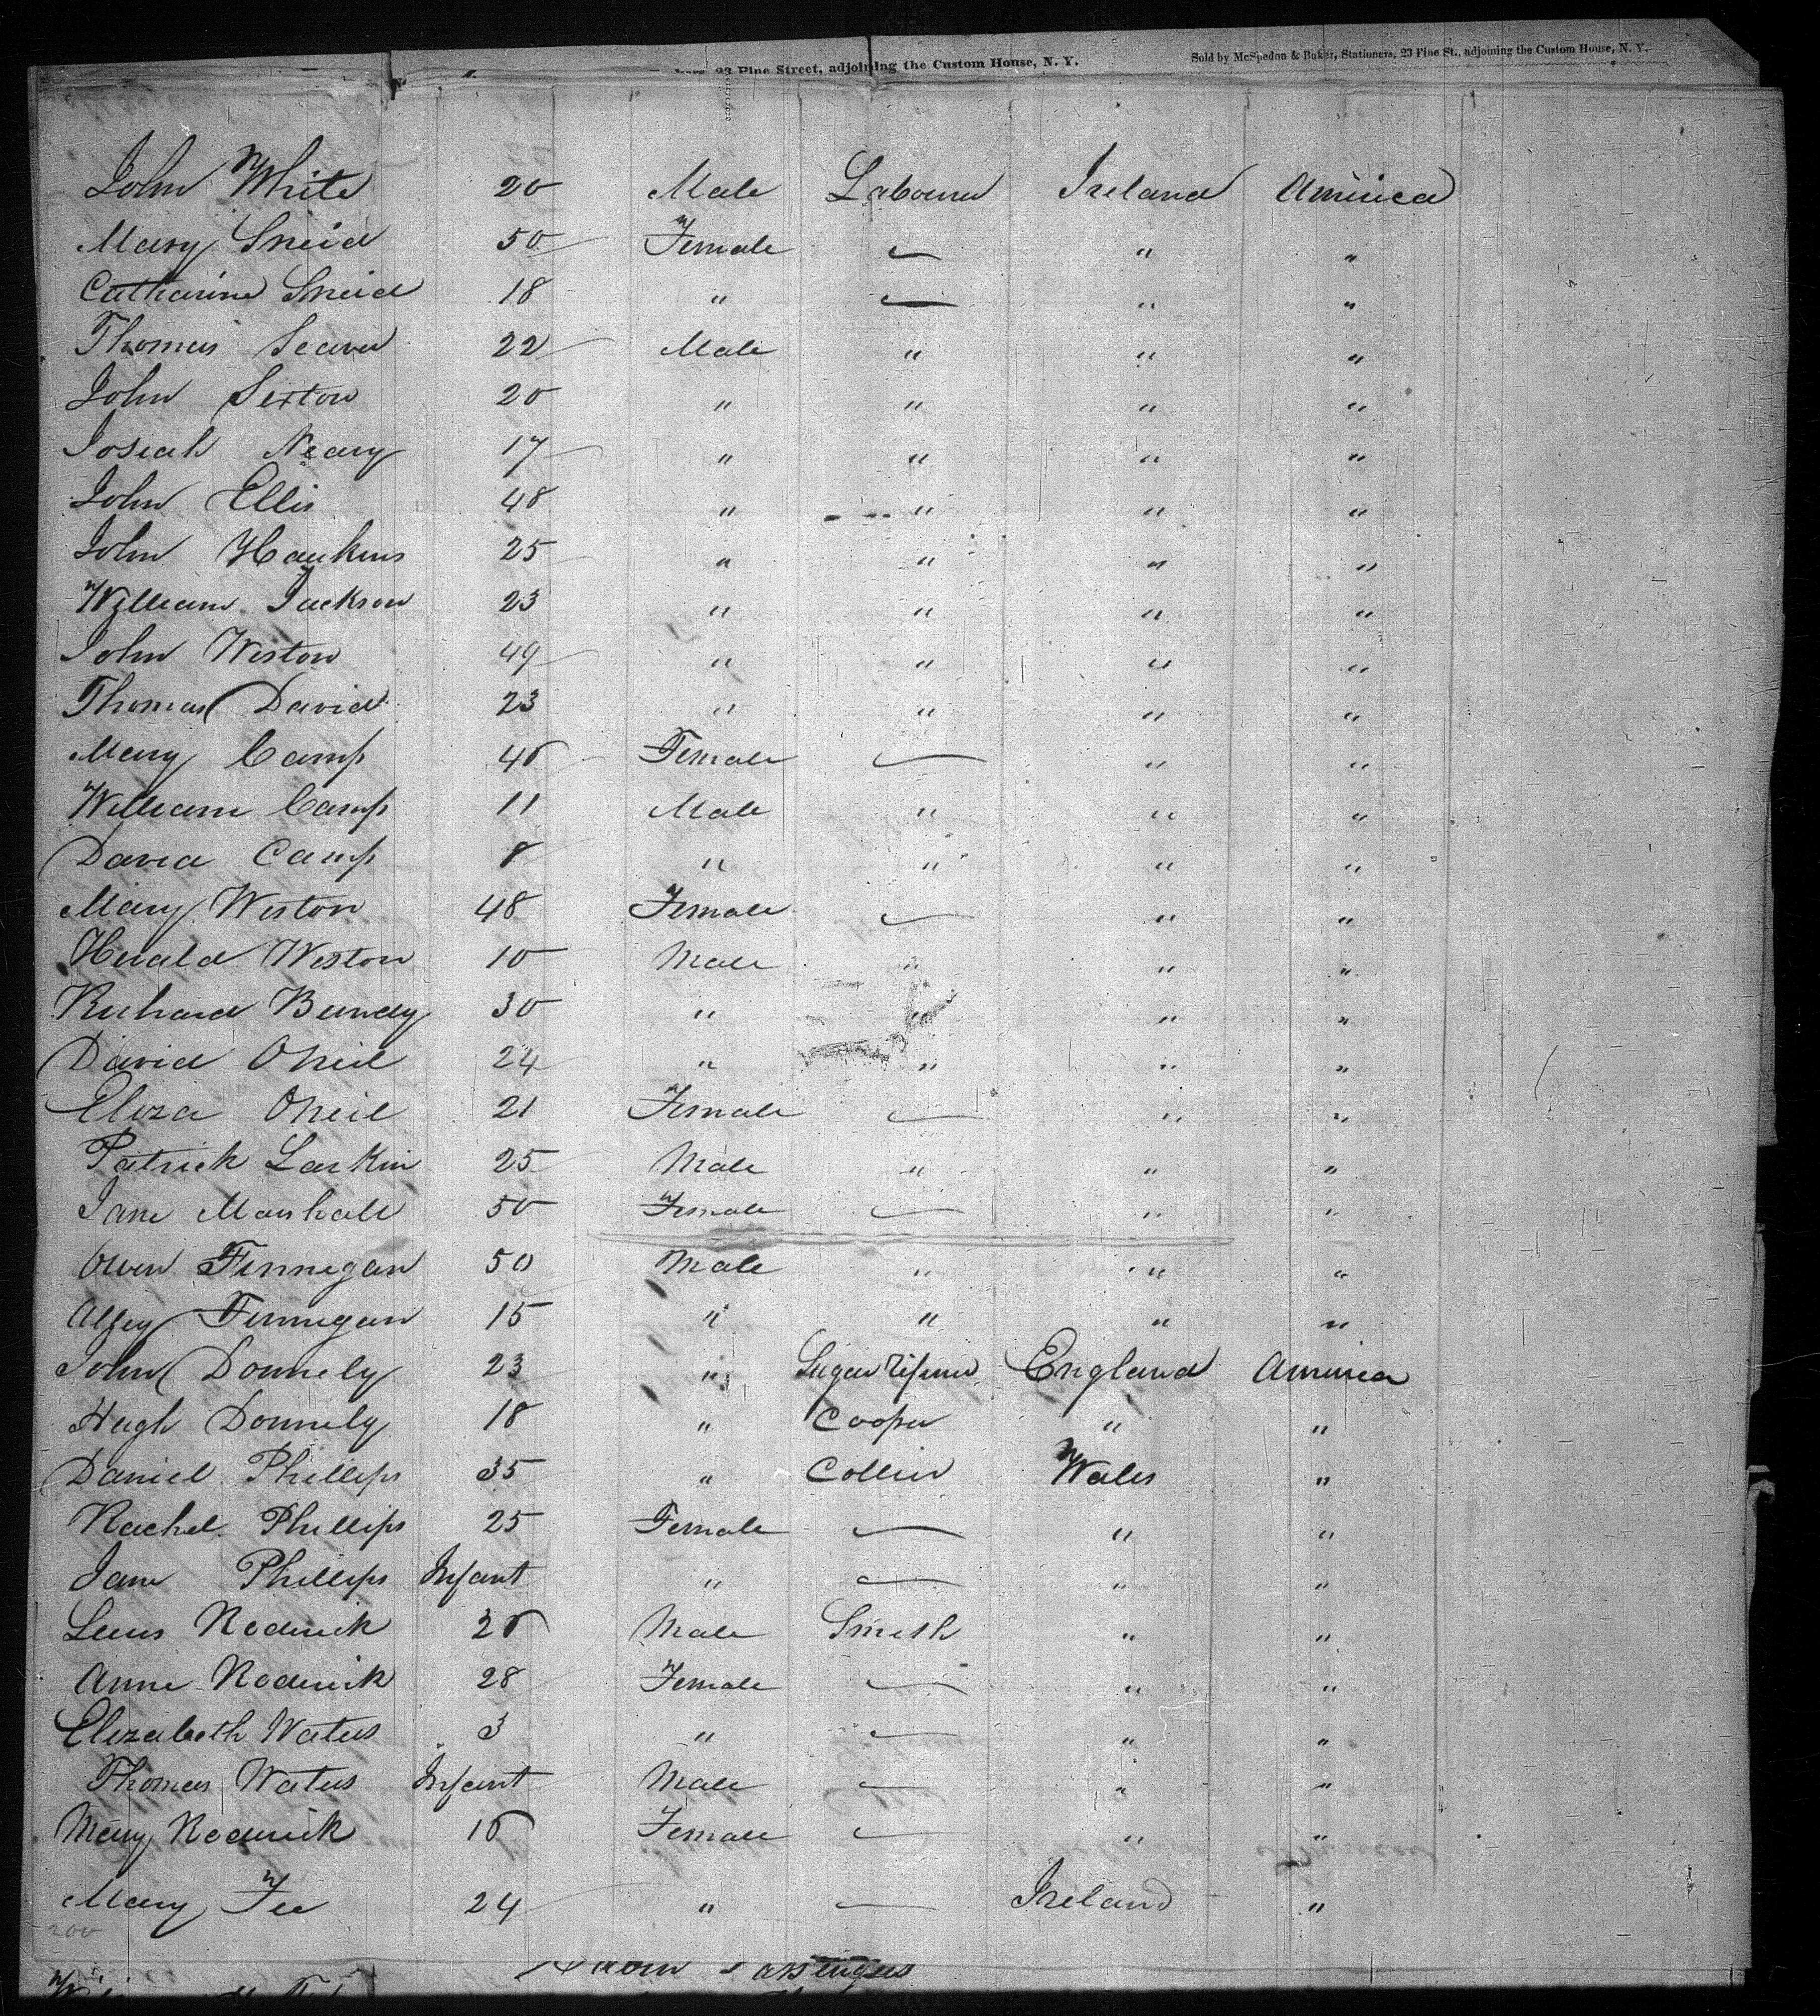 23 Pine Street, adjoining the Custom House, N. Y.
Sold by McSpedon & Baker, Stationers, 23 Pine St., adjoining the Custom House, N. Y.
John White 20 Male Labourer Ireland America
Mary Sneid 50 Female — " "
Catharine Sneid 18 " — " "
Thomas Seaver 22 Male " " "
John Sexton 20 " " " "
Josiah Neary 17 " " " "
John Ellis 48 " " " "
John Haukins 25 " " " "
William Jackson 23 " " " "
John Weston 49 " " " "
Thomas David 23 " " " "
Mary Camp Female — " "
William Camp 11 Male " " "
David Camp 8 " " " "
Mary Weston 48 Female — " "
Herald Weston 10 Male " " "
Richard Bundy 30 " " " "
David Oneil 24 " " " "
Eliza Oneil 21 Female — " "
Patrick Larkin 25 Male " " "
Jane Marshall 50 Female — " "
Owen Finnegan 50 Male " " "
Finnegan 15 " " " "
John Donnely 23 " Sugar refiner England America
Hugh Donnely 18 " Cooper " "
Daniel Phillips 35 " Collier Wales "
Rachel Phillips 25 Female — " "
Jane Phillips Infant " — " "
Lewis Roderick Male Smith " "
Anne Roderick 28 Female — " "
Elizabeth Waters 3 " — " "
Thomas Waters Infant Male — " "
Mary Roderick Female — " "
Mary Fee 24 " — Ireland "
200
Passengers